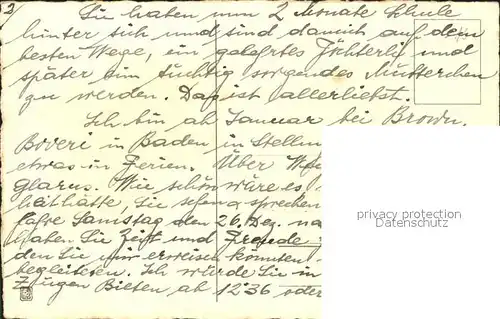 2)
Sie haben nun 2 Monate Schule
hinter sich und sind damit auf dem
besten Wege, ein gelehrtes Töchterli und
später ein tüchtig sorgendes Mütterchen
zu werden. Das ist allerliebst.
Ich bin ab Januar bei Brown,
Boveri in Baden in Stellu
etwas in Ferien. Über W
Glarus. Wie schön wäre es
hätte, Sie sprechen
Samstag den 26. Dez. na
haben Sie Zeit und Freude
den Sie mir erweisen könnten
begleiten. Ich würde Sie in
Zeugen Bieten ab 12:36 oder
privacy protection
Datenschutz